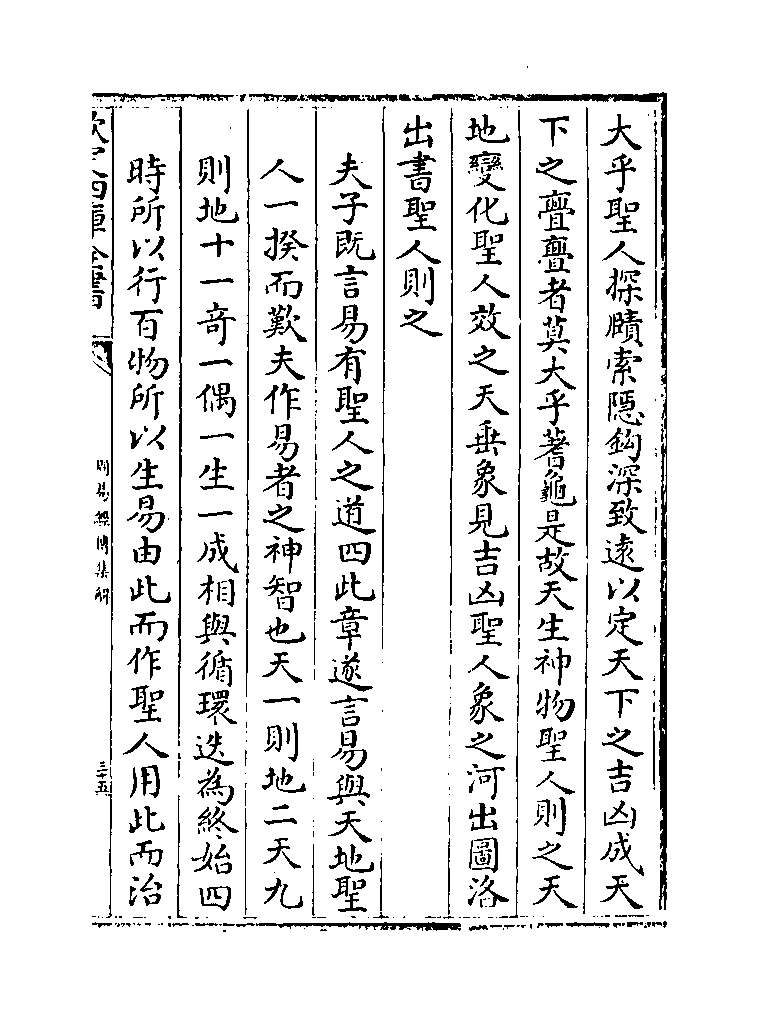 大乎聖人探賾索隱鈎深致遠以定天下之吉凶成天
下之亹亹者莫大乎蓍龜是故天生神物聖人則之天
地變化聖人效之天垂象見吉凶聖人象之河出圖洛
出書聖人則之
夫子既言易有聖人之道四此章遂言易與天地聖
人一揆而歎夫作易者之神智也天一則地二天九
則地十一奇一偶一生一成相與循環迭為終始四
時所以行百物所以生易由此而作聖人用此而治
欽定四庫全書
周易經傳集解
三十五